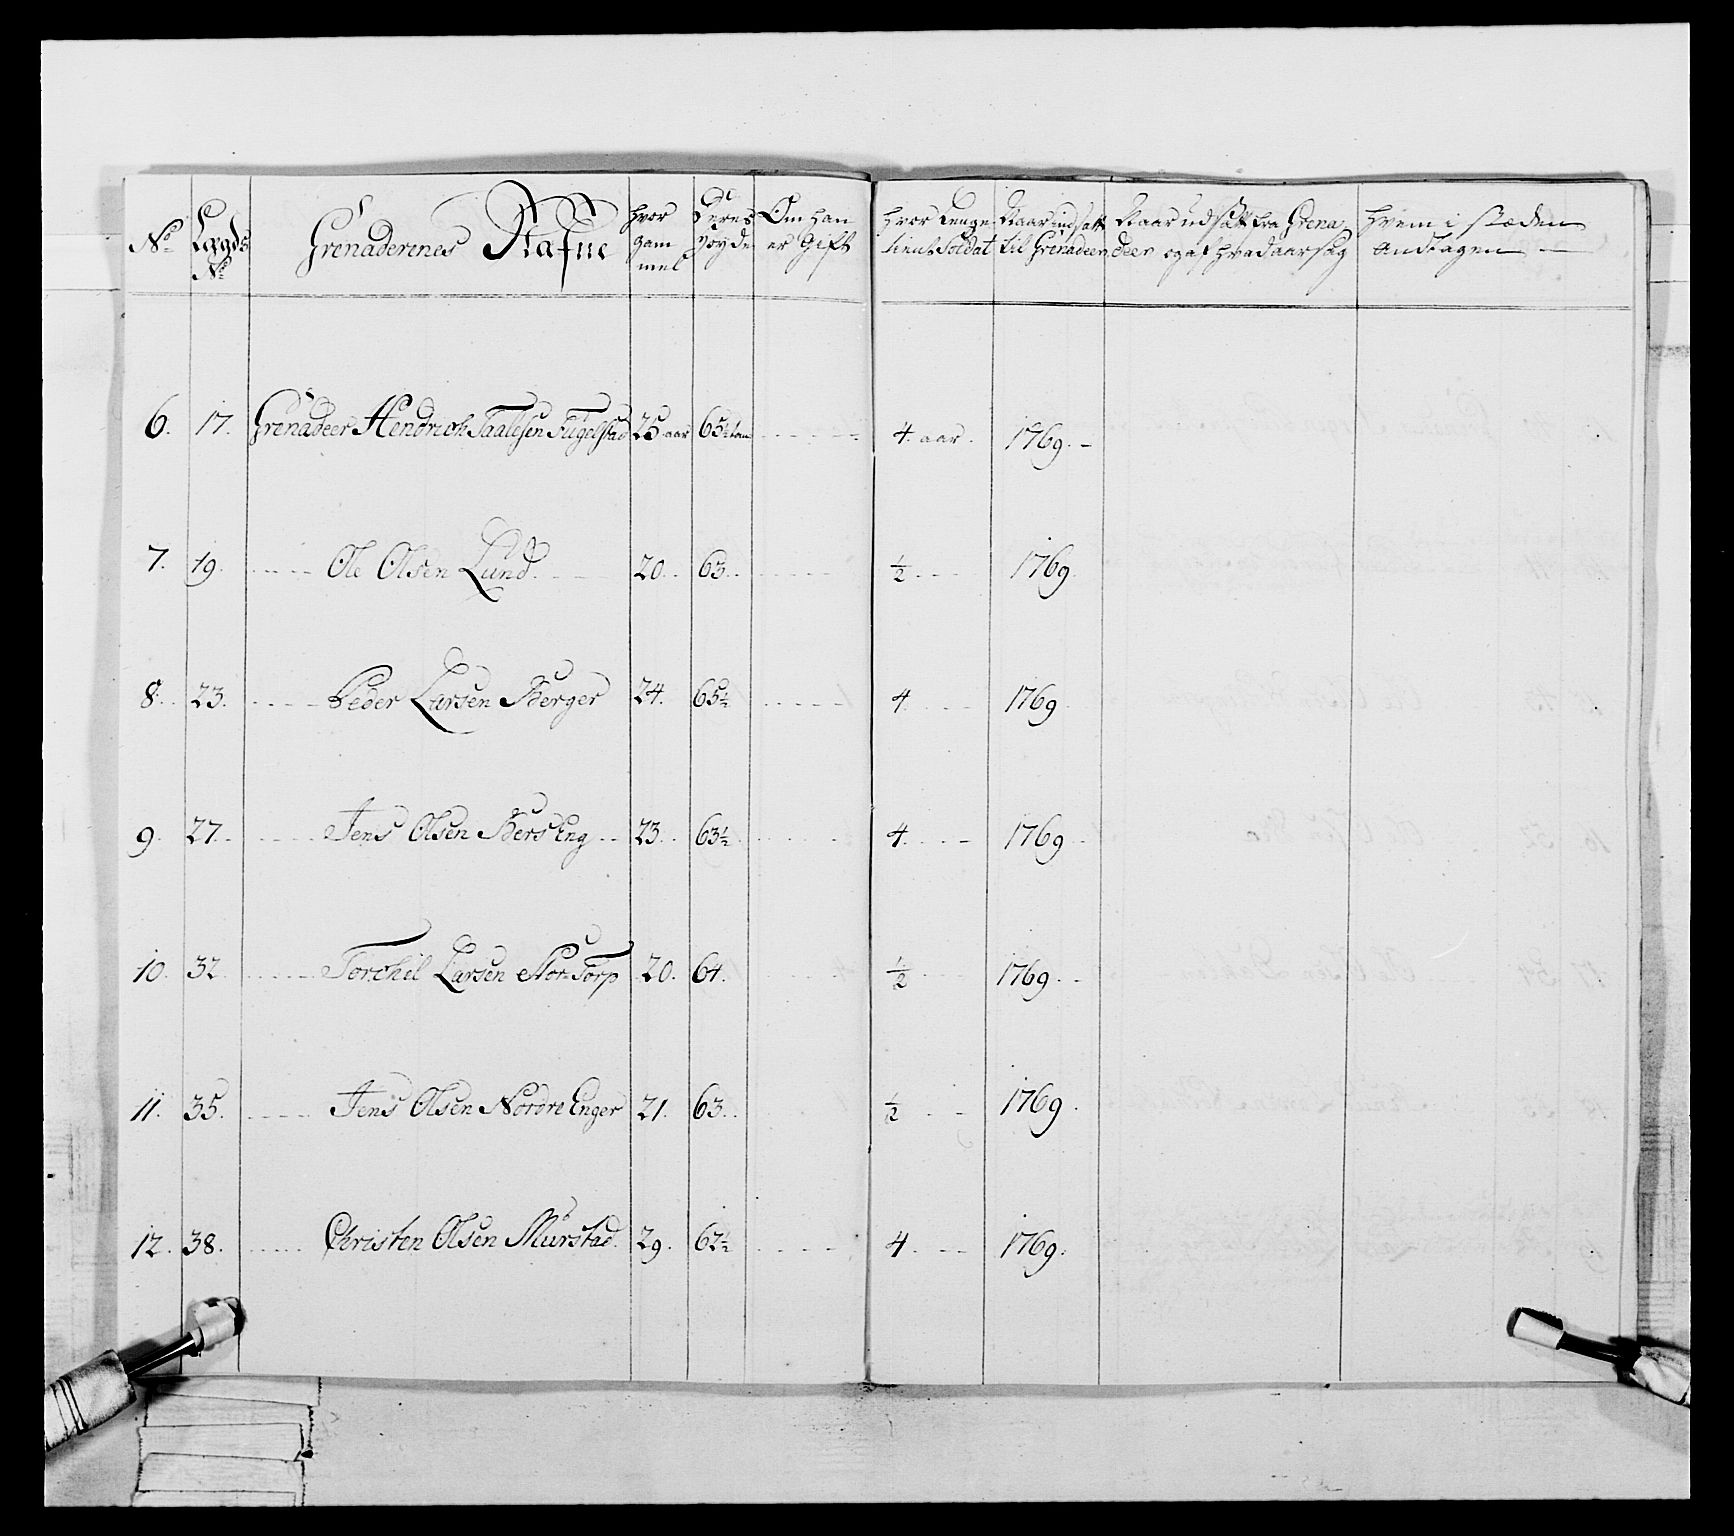 No Lægds No Grenaderernes Nafne hvor gam mel Deres Høyde Om han er Gift hvor Lenge tient Soldat Naar indsatt til Grenadeer Naar udsatt fra Grena deer og af hvad aarsag Hvem i stæden Antagen
6. 17. Grenadeer Hendrich Taalesen Fugelstad 25 aar 65½ tom 4 aar. 1769.
7. 19. Ole Olsen Lund 20. 63. ½ 1769.
8. 23. Peder Larsen Berger 24. 65½ 4 1769
9. 27. Jens Olsen Bers Eng 23. 63½ 4. 1769
10. 32 Torchel Larsen Nor Torp 20. 64. ½ 1769.
11. 35. Jens Olsen Nordre Enger 21. 63. ½ 1769.
12. 38. Christen Olsen Murstad. 29. 62½ 4. 1769.